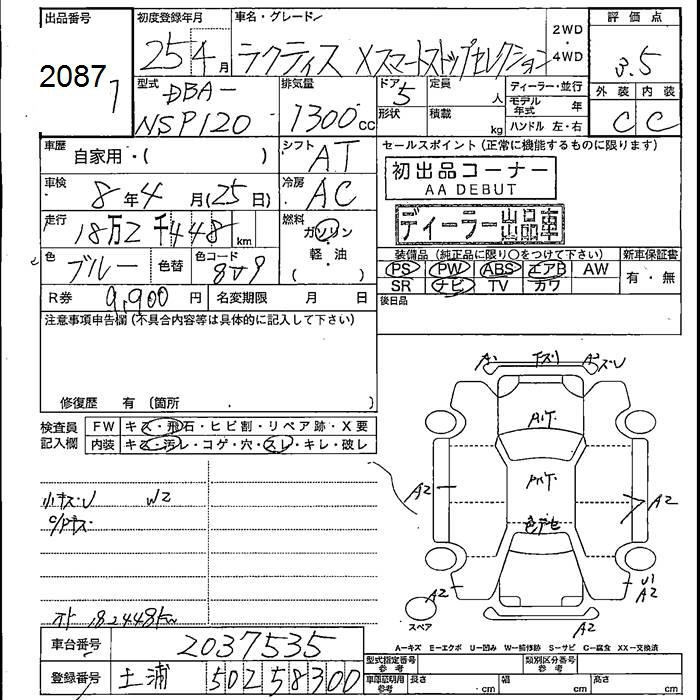 出品番号 初度登録年月 車名・グレード 2WD 評価点
2087 25年4月 ラクティス Xスマートストップセレクション ・ 3.5
7 4WD
型式 排気量 ドア 定員 ディーラー・並行 外装 内装
DBA- 5 人 モデル年式 年
NSP120 1300cc 形状 積載 kg ハンドル 左・右 C C
車歴 自家用・( ) シフト AT セールスポイント(正常に機能するものに限ります)
車検 8年4月(25日) 冷房 AC 初出品コーナー
AA DEBUT
走行 18万2千448km 燃料 ガソリン ディーラー出品車
軽・油
( )
色 ブルー 色替 色コード 8V9 装備品(純正品に限り○をつけて下さい) 新車保証書
PS PW ABS エアB AW 有・無
R券 9,900円 名変期限 月 日 SR ナビ TV カワ
注意事項申告欄(不具合内容等は具体的に記入して下さい) 後日品
修復歴 有(箇所 )
検査員 FW キズ・飛石・ヒビ割・リペア跡・X要
記入欄 内装 キズ・汚レ・コゲ・穴・スレ・キレ・破レ
A1 下スリ A2 スレ
A2 A2
色デセ
小キズ・U W2
オト 182448km
A2 U1
A2
スペア A2
A-キズ E-エクボ U-凹み W-補修跡 S-サビ C-腐食 XX-交換済
車台番号 2037535 型式指定番号 参考 類別区分番号 参考
登録番号 土浦 502 58300 車印証明用 参考 長さ ・cm 幅 ・cm 高さ ・cm